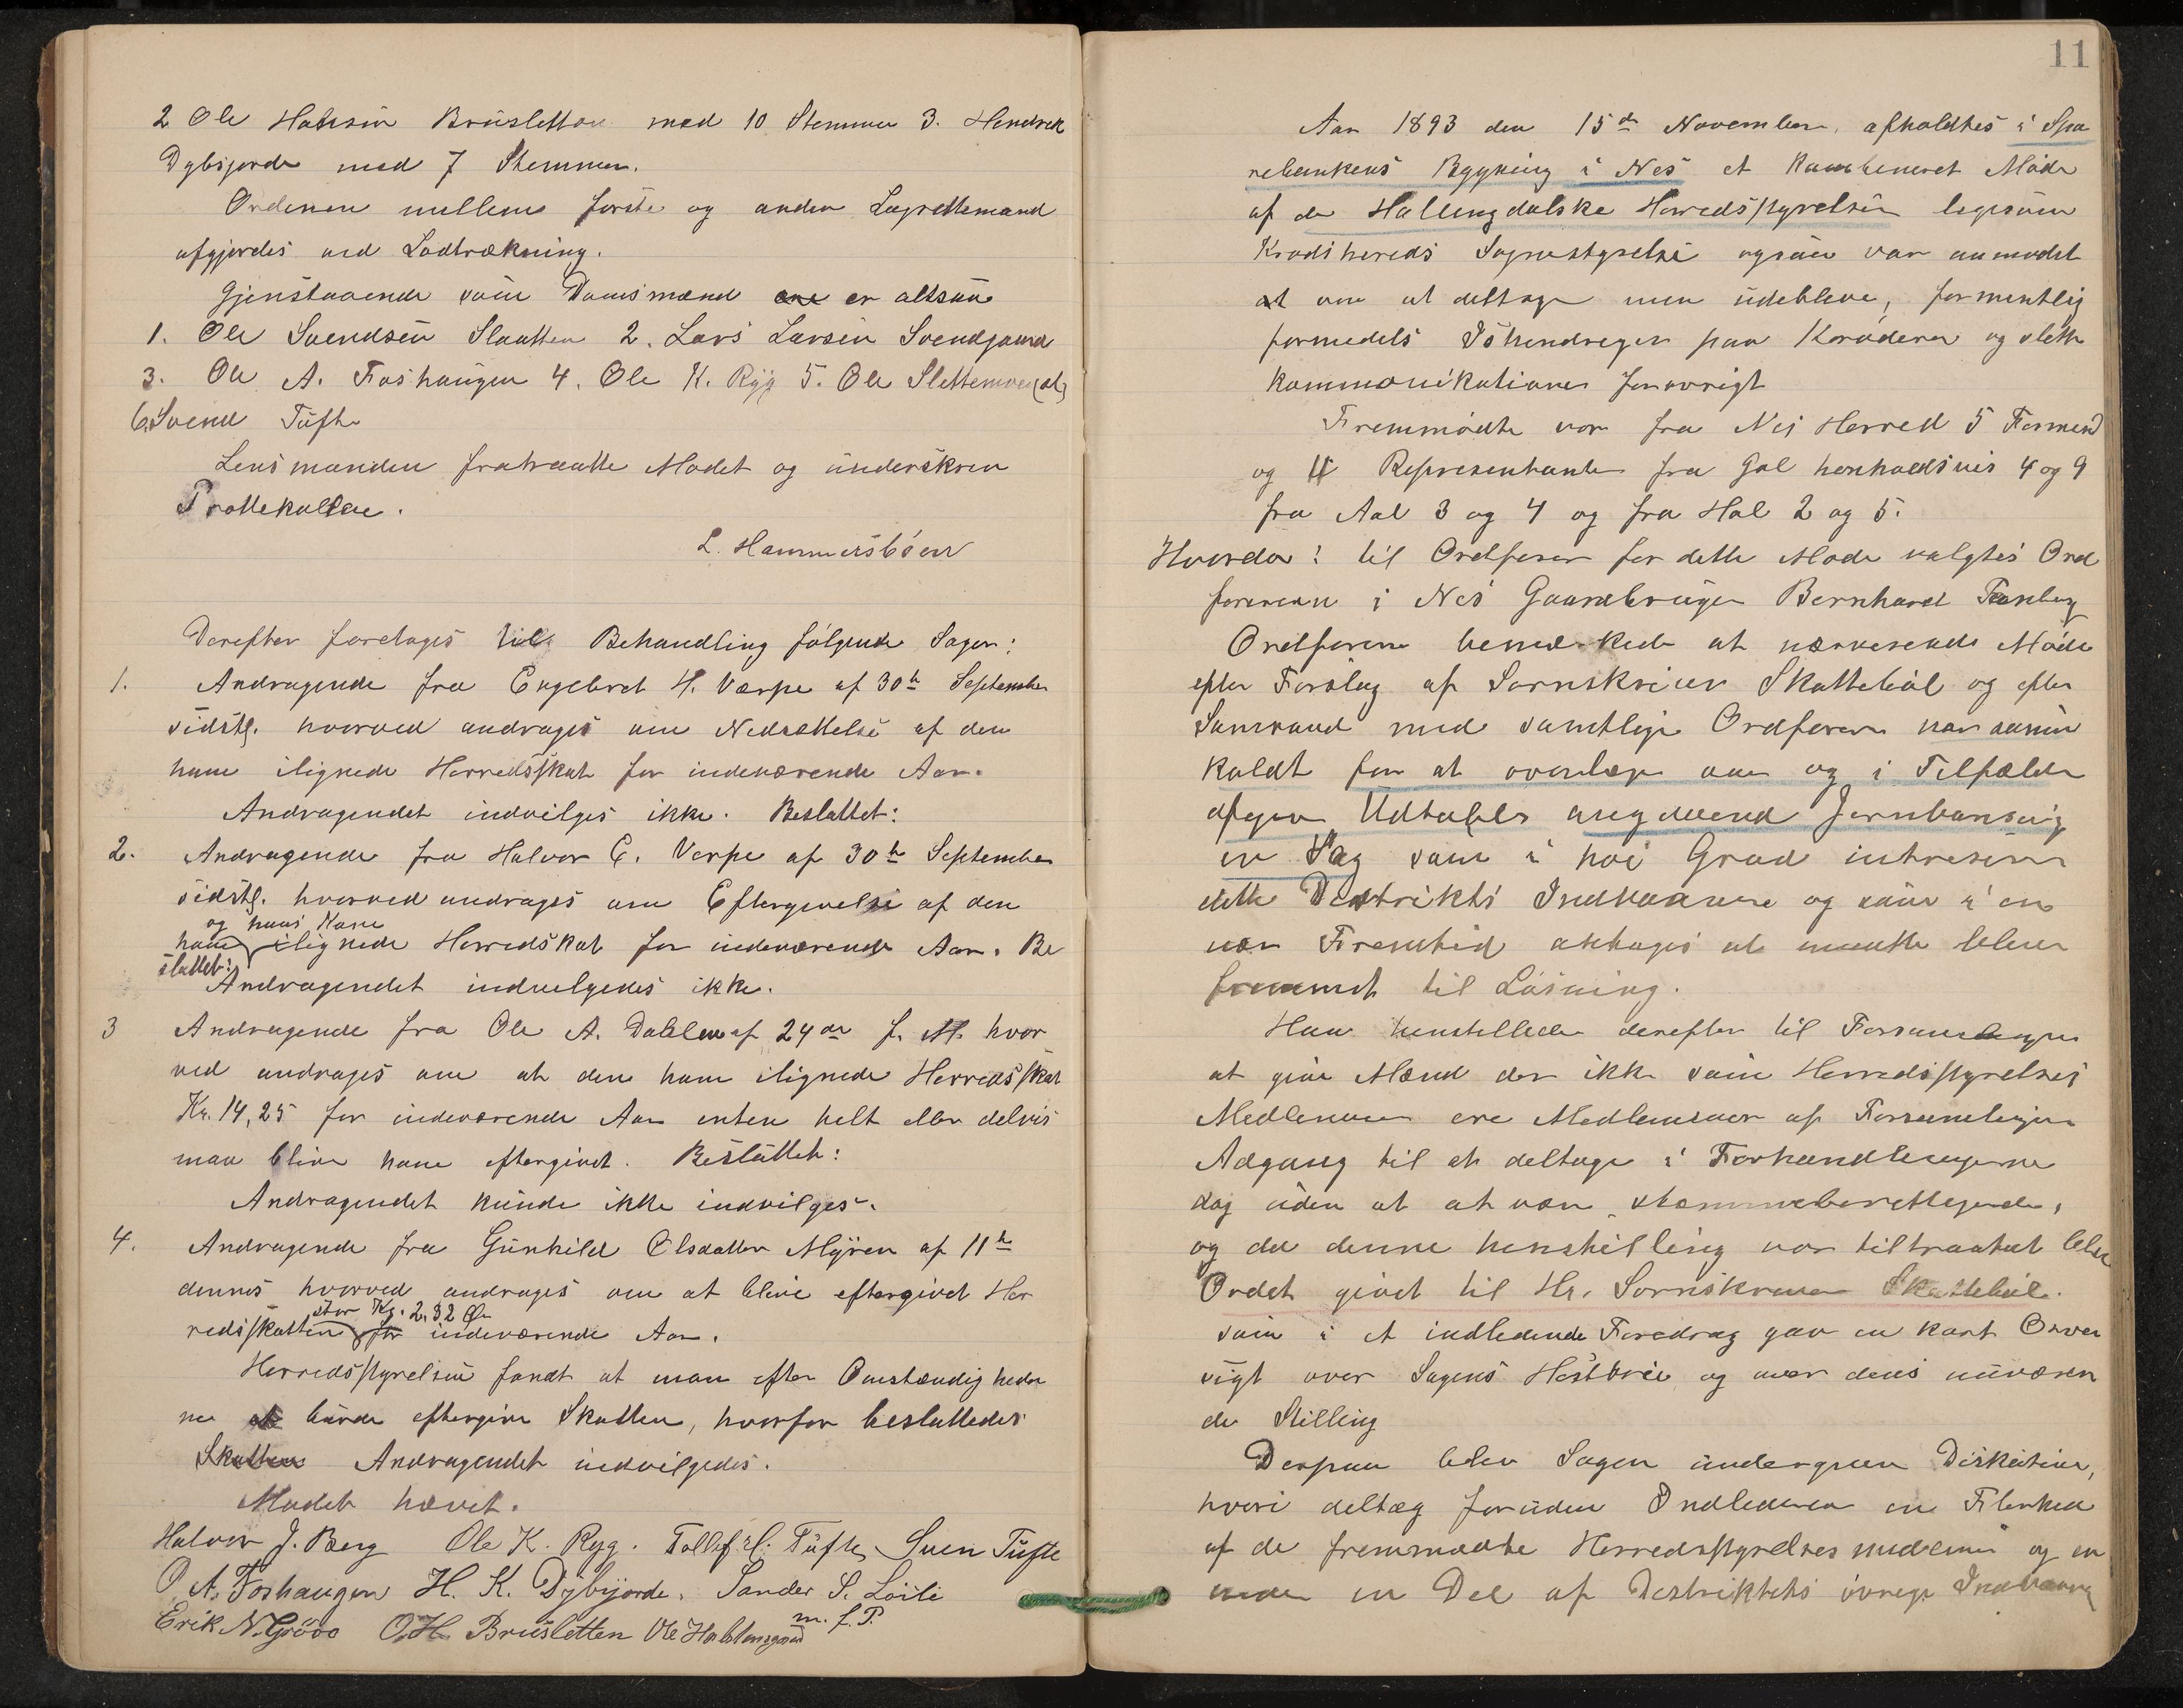 2 Ole Halvsen Brusletten med 10 Stemmer 3. Hendrik
Dybsjorde med 7 Stemmer.
Ordenen mellem første og anden Lagrettemand
afgjordes ved Lodtrækning.
Gjenstaaende som Domsmænd er altsaa
1. Ole Svendsen Slaatten 2. Lars Larsen Svendgaard
3. Ole A. Foshaugen 4. Ole K. Ryg 5. Ole Slettemoen
6. Svend Tufte
Lensmanden fratraadte Mødet og underskrev
Prottekollen.
L. Hammersbøen
Derefter foretoges til Behandling følgende Sager:
1. Andragende fra Engebret H. Værpe af 30te September
sidstl. hvorved andrages om Nedsættelse af den
ham ilignede Herredsskat for indeværende Aar.
Andragendet indvilges ikke. Besluttet:
2. Andragende fra Halvor E. Verpe af 30te September
sidstl. hvorved andrages om Eftergivelse af den
og hans Kone
ham ilignede Herredskat for indeværende Aar. Be
sluttet:
Andragendet indvilgedes ikke.
3 Andragende fra Ole A. Dahlen af 24de f. M. hvor
ved andrages om at den ham ilignede Herredsskat
Kr. 14,25 for indeværende Aar enten helt eller delvis
maa blive ham eftergivet. Besluttet:
Andragendet kunde ikke indvilges.
4. Andragende fra Gunhild Olsdatter Myren af 11te
dennes hvorved andrages om at blive eftergivet Her
stor Kr. 2.82 Øre
redsskatten for indeværende Aar.
Herredsstyrelsen fandt at man efter Omstændigheder
ne at burde eftergive Skatten, hvorfor besluttedes
Skatten Andragendet indvilgedes.
Mødet hævet.
Halvor J. Berg Ole K. Ryg. Tollef H. Tufte Sven Tufte
O. A. Foshaugen H. K. Dybsjorde. Sander S. Løili
m. f. P.
Erik N. Grøvo O. H. Brusletten Ole
11
Aar 1893 den 15de November, afholdtes i Spa
rebankens Bygning i Nes et kombineret Møde
af de Hallingdalske Herredsstyrelser ligesom
Krødshereds Sognestyrelse ogsaa var anmodet
at om at deltage men udebleve, formentlig
formedels Ishindringer paa Krøderen og slette
kommonikationer forøvrigt
Fremmødte var fra Nes Herred 5 Formænd
og 11 Representanter fra Gol henholdsvis 4 og 9
fra Aal 3 og 4 og fra Hol 2 og 5.
Hvorda: til Ordfører for dette Møde valgtes Ord
føreren i Nes Gaardbruger Bernhard
Ordføreren bemærkede at nærværende Møde
efter Forslag af Sorenskriver Skattebøl og efter
Samraad med samtlige Ordførere var samm
kaldt for at overlægge om og i Tilfælde
afgive Udtalelse angaaend Jernbanevæg
en Sag som i høi Grad intreserer
dette Destrikts Indvaanere og som i en
nær Fremtid antages at maatte blive
fremmet til Løsning.
Han henstillede derefter til Forsamlingen
at give Mænd der ikke som Herredsstyrelses
Medlemmer ere Medlemmer af Forsamlingen
Adgang til at deltage i Forhandlingerne
dog uden at at være stemmeberettigende,
og da denne henstilling var tiltraadt blev
Ordet givet til Hr. Sorenskriver Skattebøl.
som i et indledende Foredrag gav en kort Over
sigt over Sagens Historie og over dens nuværen
de Stilling
Derpaa blev Sagen undergiven Diskusion,
hvori deltog foruden Indlederen en Flerhed
af de fremmødte Herredsstyrelsesmedlemmer og en
en Del af Destriktets øvrige Indvaanere